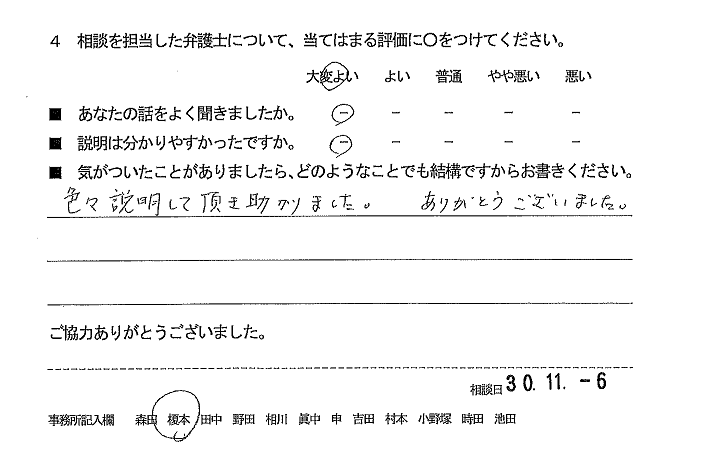 4 相談を担当した弁護士について、当てはまる評価に〇をつけてください。
大変よい よい 普通 やや悪い 悪い
■ あなたの話をよく聞きましたか。 － － － － －
■ 説明は分かりやすかったですか。 － － － － －
■ 気がついたことがありましたら、どのようなことでも結構ですからお書きください。
色々説明して頂き助かりました。 ありがとうございました。
ご協力ありがとうございました。
相談日 30.11.-6
事務所記入欄 森田 榎本 田中 野田 相川 眞中 申 吉田 村本 小野塚 時田 池田